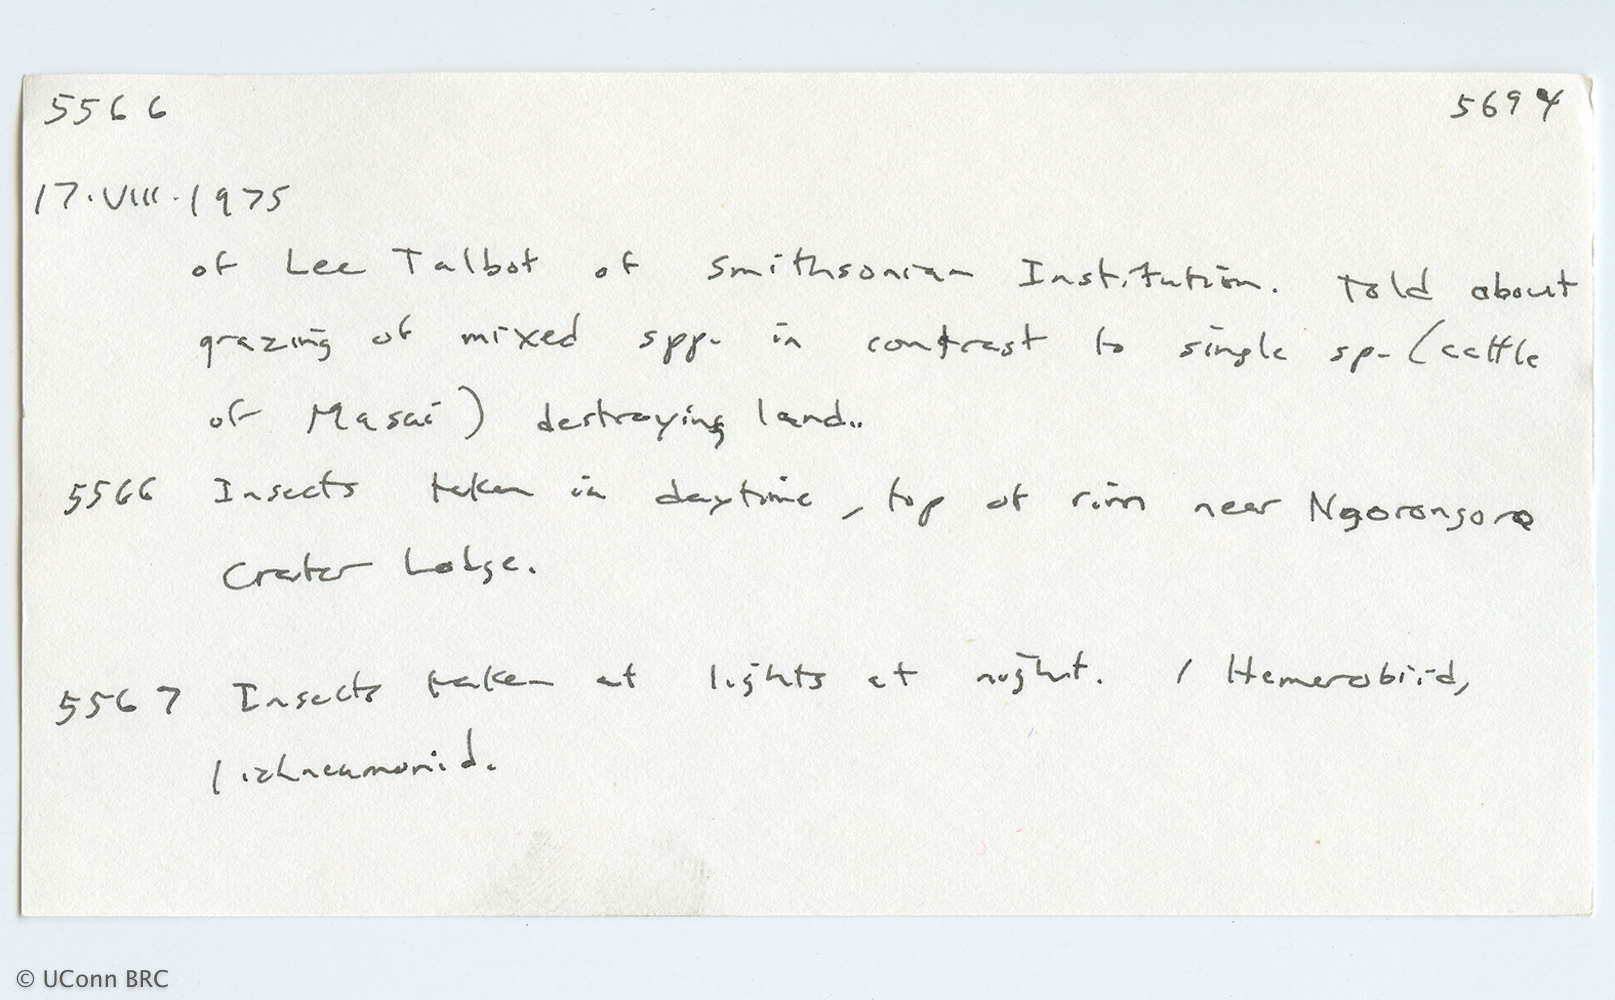 5566 5694
17.VIII.1975
of Lee Talbot of Smithsonian Institution. Told about
grazing of mixed spp. in contrast to single sp. (cattle
of Masai) destroying land..
5566 Insects taken in daytime, top of rim near Ngorongoro
Crater Lodge.
5567 Insects taken at lights at night. 1 Hemerobiid,
1 ichneumonid.
© UConn BRC